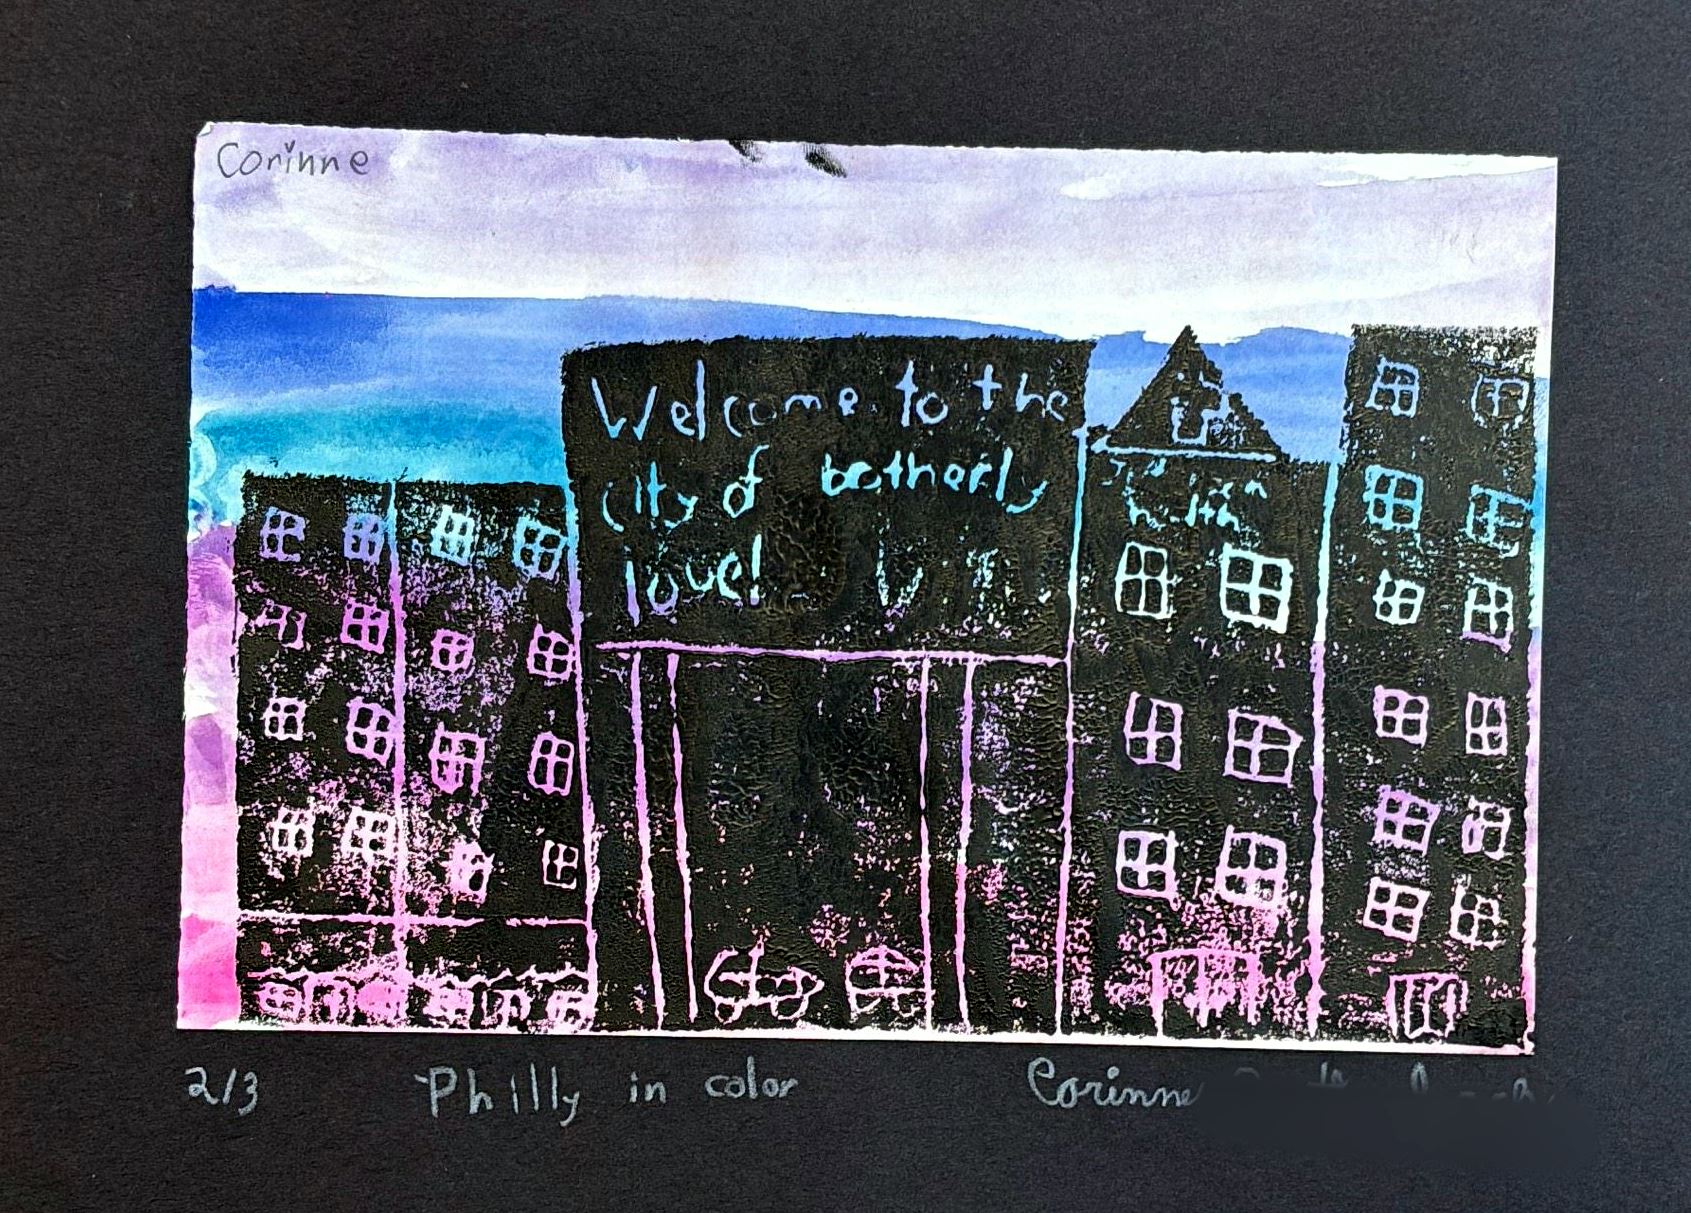 Corinne
Welcome to the
city of botherly
love!
2/3 Philly in color Corinne